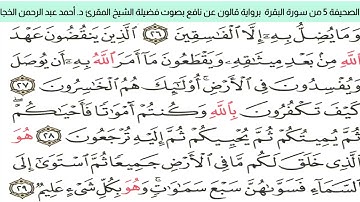 الصحيفة 5 من سورة البقرة برواية قالون عن نافع بصوت فضيلة الشيخ المقرئ د. أحمد عبد الرحمن الخجا
وَمَا يُضِلُّ بِهِۦٓ إِلَّا اَ۬لْفَٰسِقِينَ ٢٦ اَ۬لذِينَ يَنقُضُونَ عَهْدَ
اَ۬للَّهِ مِنۢ بَعْدِ مِيثَٰقِهِۦ وَيَقْطَعُونَ مَا أَمَرَ اَ۬للَّهُ بِهِۦٓ أَنْ يُوصَلَ
وَيُفْسِدُونَ فِے اِ۬لْأَرْضِ أُوْلَٰٓئِكَ هُمُ اُ۬لْخَٰسِرُونَ ٢٧
كَيْفَ تَكْفُرُونَ بِاللَّهِ وَكُنتُمْ أَمْوَٰتاٗ فَأَحْيَٰكُمْ
ثُمَّ يُمِيتُكُمْ ثُمَّ يُحْيِيكُمْ ثُمَّ إِلَيْهِ تُرْجَعُونَ ٢٨ هُوَ
اَ۬لذِے خَلَقَ لَكُم مَّا فِے اِ۬لْأَرْضِ جَمِيعاٗ ثُمَّ اَ۪سْتَوَىٰٓ إِلَى
اَ۬لسَّمَآءِ فَسَوَّىٰهُنَّ سَبْعَ سَمَٰوَٰتٖ وَهْوَ بِكُلِّ شَےْءٍ عَلِيمٞ ٢٩